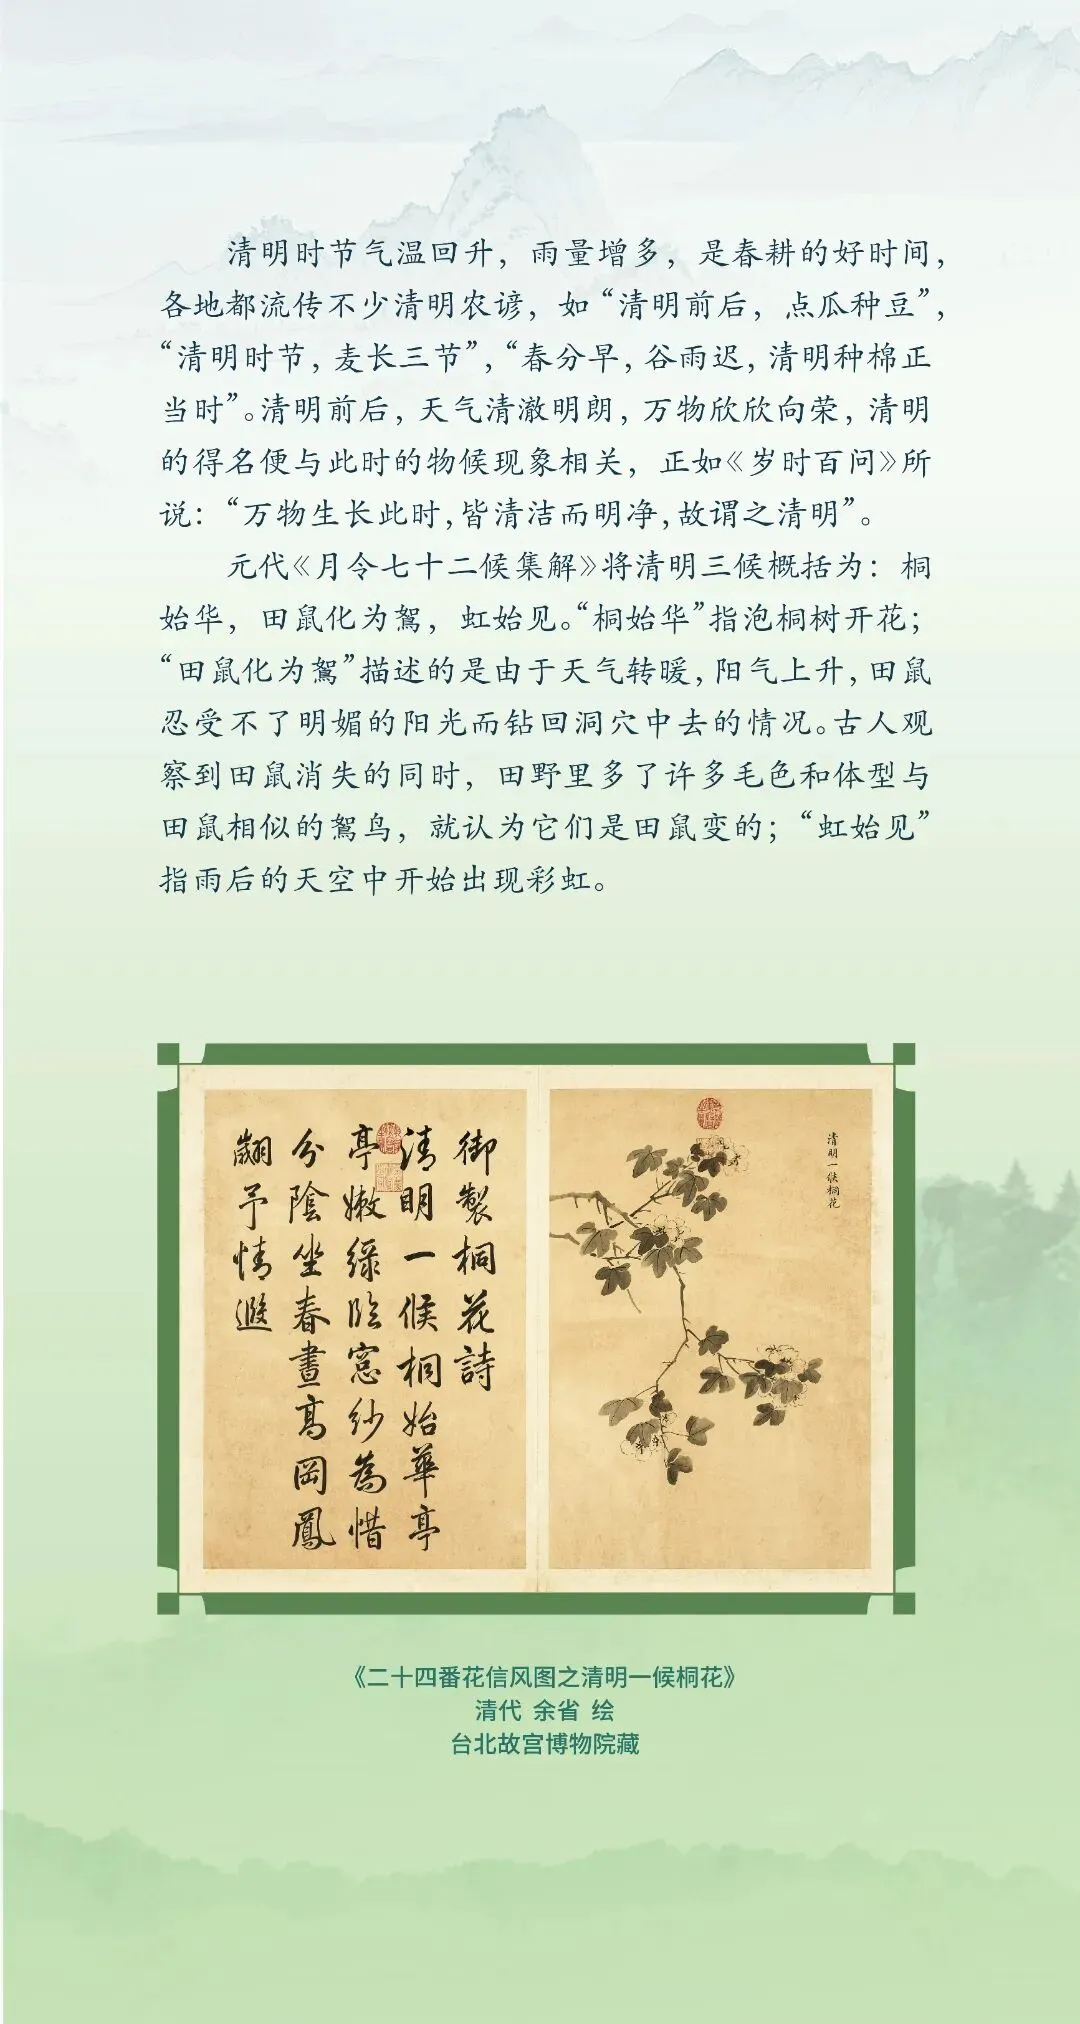 清明时节气温回升，雨量增多，是春耕的好时间，
各地都流传不少清明农谚，如“清明前后，点瓜种豆”，
“清明时节，麦长三节”，“春分早，谷雨迟，清明种棉正
当时”。清明前后，天气清澈明朗，万物欣欣向荣，清明
的得名便与此时的物候现象相关，正如《岁时百问》所
说：“万物生长此时，皆清洁而明净，故谓之清明”。
元代《月令七十二候集解》将清明三候概括为：桐
始华，田鼠化为鴽，虹始见。“桐始华”指泡桐树开花；
“田鼠化为鴽”描述的是由于天气转暖，阳气上升，田鼠
忍受不了明媚的阳光而钻回洞穴中去的情况。古人观
察到田鼠消失的同时，田野里多了许多毛色和体型与
田鼠相似的鴽鸟，就认为它们是田鼠变的；“虹始见”
指雨后的天空中开始出现彩虹。
清明一候桐花
御製桐花詩
清明一候桐始華亭
亭嫩綠臨窓紗為惜
分陰坐春晝高岡鳳
翽予情遐
《二十四番花信风图之清明一候桐花》
清代 余省 绘
台北故宫博物院藏